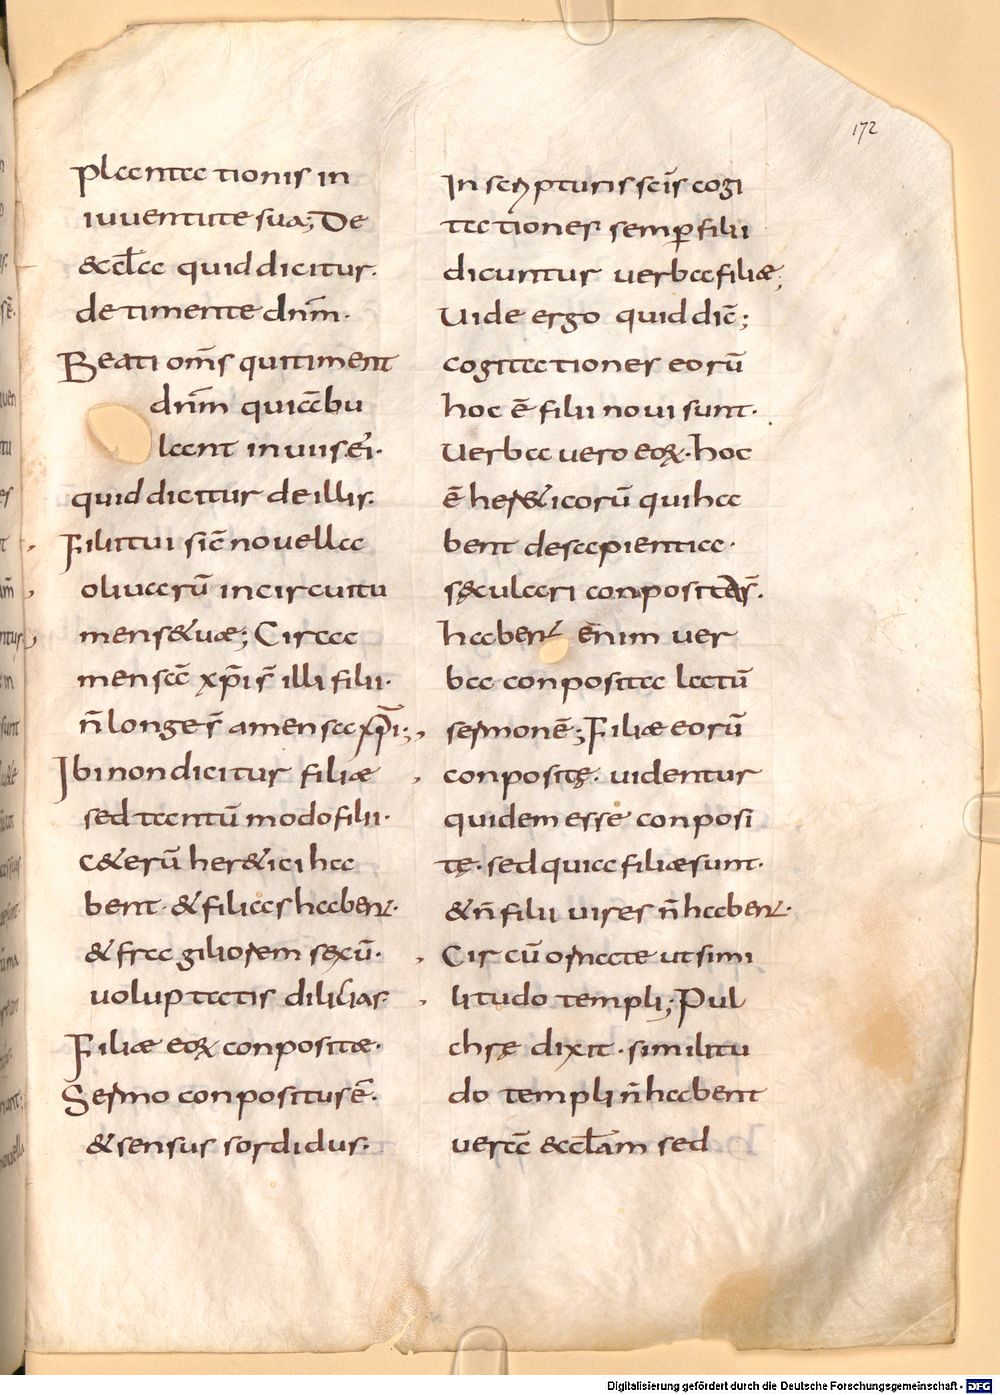 172
plantationis in
iuuentute sua; De
&cl̄a quid dicitur.
de timente dn̄m.
Beati om̄s qui timent
dn̄m qui ābu
lant in uiis ei'.
quid dicitur de illis.
Filii tui sic̄ nouella
oliuarū in circuitu
mens& uæ; Circa
mensā xp̄i s̄ illi filii.
n̄ longe s̄ a mensa xp̄i;
Ibi non dicitur filiæ
sed tantū modo filii.
C&erū her&ici ha
bent & filias haben͛.
& fragiliorem sexū.
uoluptatis dilicias.
Filiæ eoꝝ conpositæ.
Sermo conpositus ē.
& sensus sordidus.
In scripturis sc̄is cogi
tationes semꝑ filii
dicuntur uerba filiæ;
Uide ergo quid dic̄;
cogitationes eorū
hoc ē filii noui sunt.
Uerba uero eoꝝ. hoc
ē her&icorū qui ha
bent de sapientia.
sęculari conpositas.
haben͛ enim uer
ba conposita lactū
sermonē; Filiæ eorū
conpositę. uidentur
quidem esse conposi
tę. sed quia filiæ sunt.
& n̄ filii uires n̄ haben͛.
Circū ornate ut simi
litudo templi; Pul
chrę dixit. similitu
do templi n̄ habent
uerā &cl̄am sed
Digitalisierung gefördert durch die Deutsche Forschungsgemeinschaft - DFG